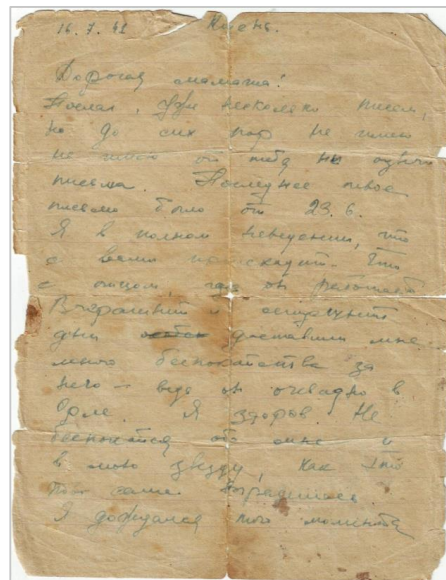 16.7.41 Киев.
Дорогая мамаша!
Послал уже несколько писем,
но до сих пор не имею
не имею от тебя ни одного
письма. Последнее твое
письмо было от 23.6.
Я в полном неведении, что
с вами происходит. Что
с отцом, где он работает
Вчерашний и
дни доставили мне
много беспокойства за
него – ведь он очевидно в
Я здоров. Не
беспокойся обо мне и
в мою звезду, как это
ты сама выразилась.
Я дождался того момента